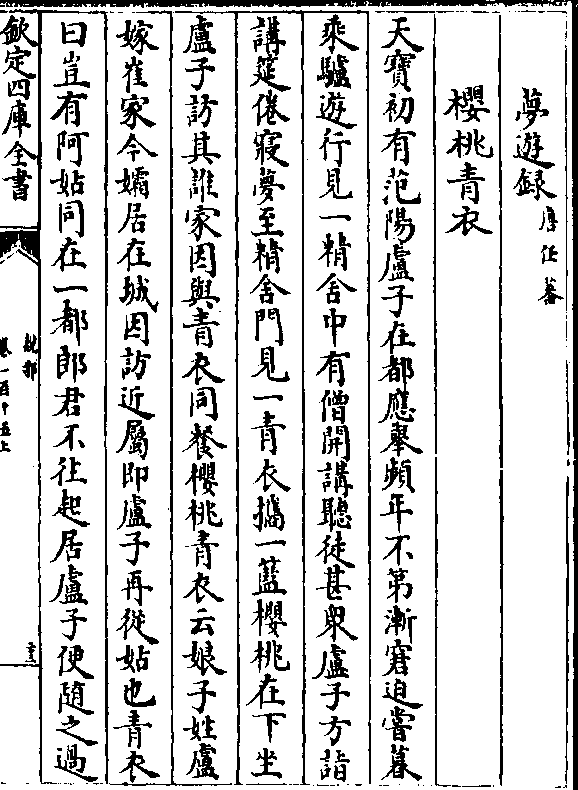 夢遊録 唐任蕃
櫻桃青衣
天寳初有范陽盧子在都應舉頻年不第漸窘迫嘗暮
乘驢遊行見一精舍中有僧開講聽徒甚衆盧子方詣
講筵倦寢夢至精舍門見一青衣攜一藍櫻桃在下坐
盧子訪其誰家因與青衣同餐櫻桃青衣云娘子姓盧
嫁崔家今孀居在城因訪近屬即盧子再從姑也青衣
曰豈有阿姑同在一都郎君不往起居盧子便隨之過
欽定四庫全書
説郛
卷一百十五上